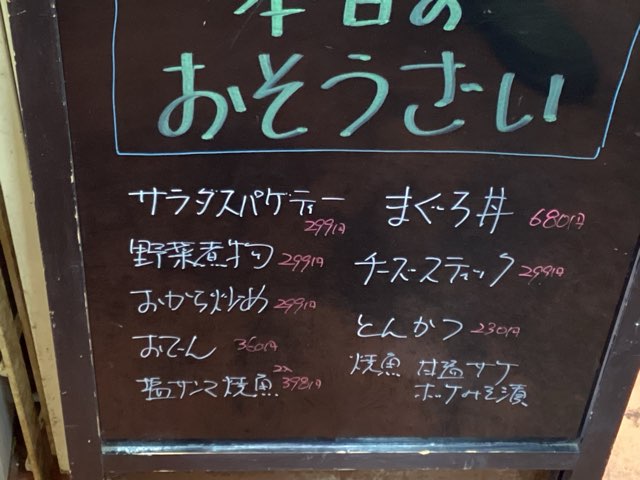 本日の
おそうさい
サラダスパゲティー
299円
野菜煮物 299円
おから炒め 299円
おでん 360円
塩サンマ焼魚 2入 398円
まぐろ丼 680円
チーズスティック 299円
とんかつ 230円
焼魚 甘塩サケ
ホッケみそ漬